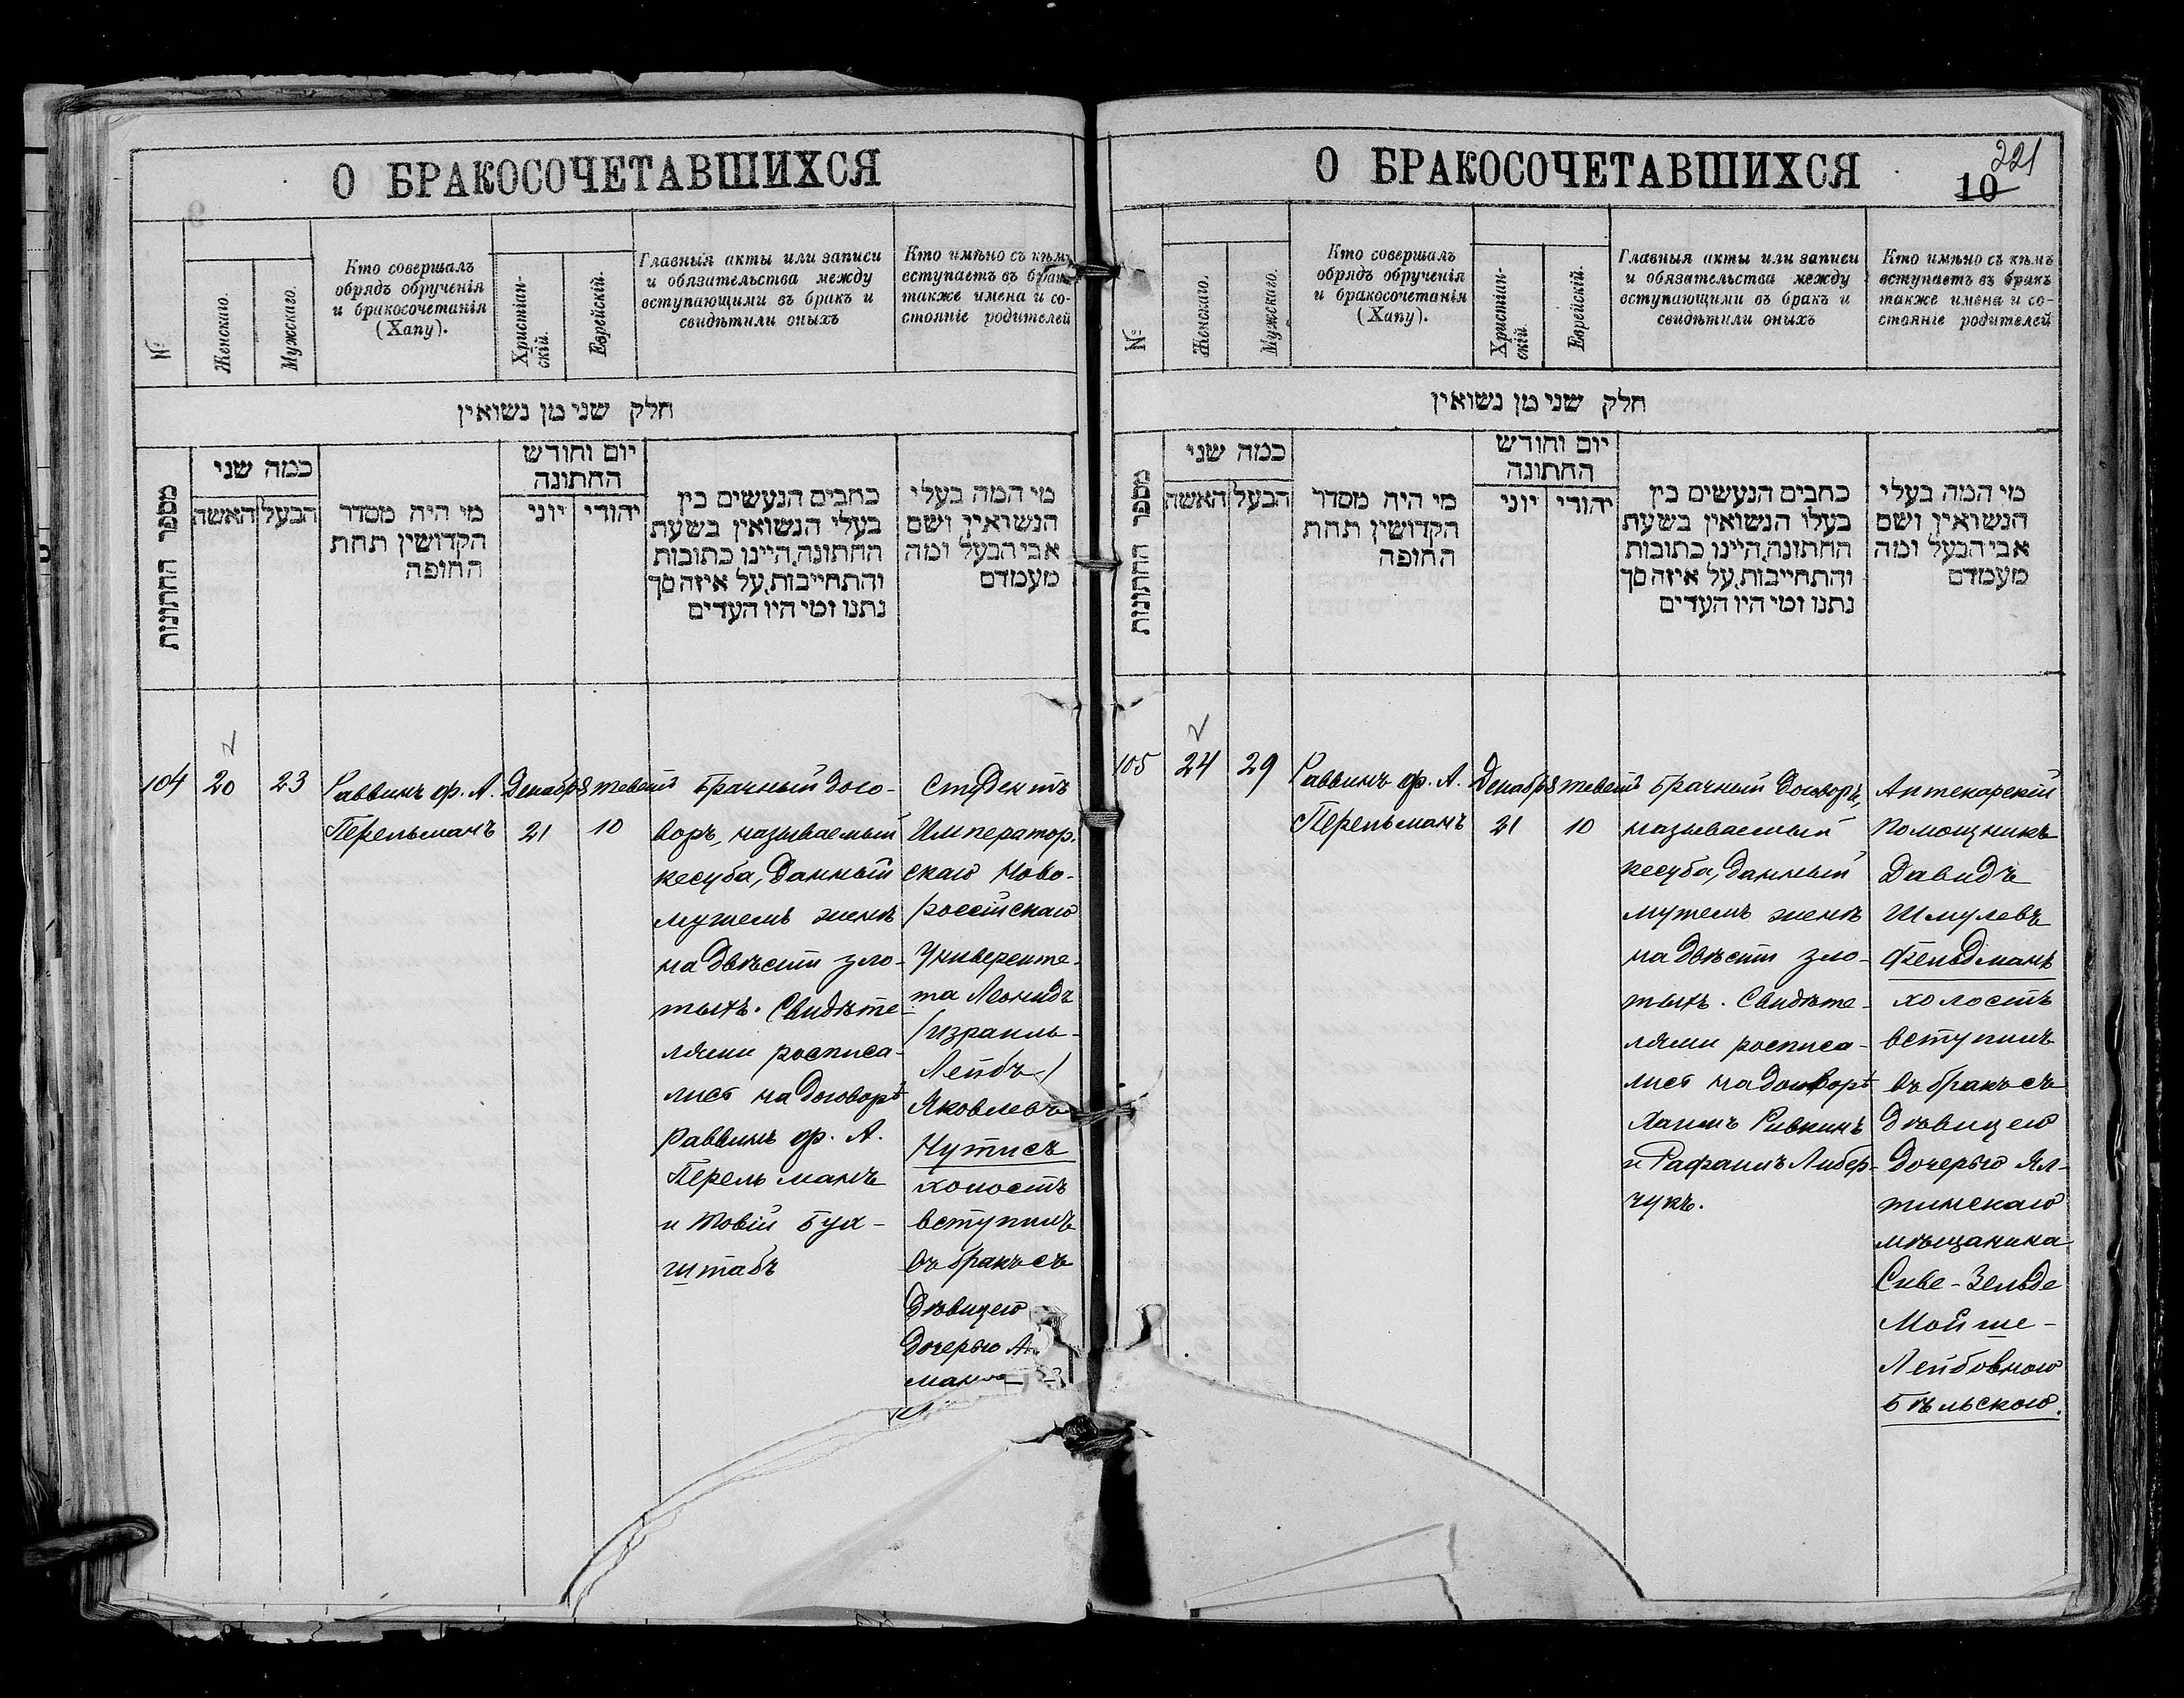 О БРАКОСОЧЕТАВШИХСЯ
№
Женскаго.
Мужскаго.
Кто совершалъ
обрядъ обрученія
и бракосочетанія
(Хапу).
Христіан-
скій.
Еврейскій.
Главныя акты или записи
и обязательства между
вступающими въ бракъ и
свидѣтили оныхъ
Кто имѣно съ кѣмъ
вступаетъ въ бракъ
также имена и со-
стояніе родителей
חלק שני מן נשואין
מספר החתונות
כמה שני
הבעל האשה
מי היה מסדר
הקדושין תחת
החופה
יום וחודש
החתונה
יהודי יוני
כתבים הנעשים בין
בעלי הנשואין בשעת
החתונה, היינו כתובות
והתחייבות, על איזה סך
נתנו ומי היו העדים
מי המה בעלי
הנשואין ושם
אבי הבעל ומה
מעמדם
104
20
23
Раввинъ ф. А.
Перельманъ
Декабря
21
тевет
10
Брачный дого-
воръ, называемый
кесуба, данный
мужемъ женѣ
на двѣсти зло-
тыхъ. Свидѣте-
лями росписа-
лись на договорѣ
Раввинъ ф. А.
Перельманъ
и Товій Бух-
штабъ
Студентъ
Император.
скаго Ново-
россійскаго
Университе-
та Леонидъ
/Израиль-
Лейбъ/
Яковлевъ
Нутисъ
холостъ
вступилъ
въ бракъ съ
дѣвицею
дочерью
О БРАКОСОЧЕТАВШИХСЯ
221
10
№
Женскаго.
Мужскаго.
Кто совершалъ
обрядъ обрученія
и бракосочетанія
(Хапу).
Христіан-
скій.
Еврейскій.
Главныя акты или записи
и обязательства между
вступающими въ бракъ и
свидѣтили оныхъ
Кто имѣно съ кѣмъ
вступаетъ въ бракъ
также имена и со-
стояніе родителей
חלק שני מן נשואין
מספר החתונות
כמה שני
הבעל האשה
מי היה מסדר
הקדושין תחת
החופה
יום וחודש
החתונה
יהודי יוני
כתבים הנעשים בין
בעלי הנשואין בשעת
החתונה, היינו כתובות
והתחייבות, על איזה סך
נתנו ומי היו העדים
מי המה בעלי
הנשואין ושם
אבי הבעל ומה
מעמדם
105
24
29
Раввинъ ф. А.
Перельманъ
Декабря
21
тевет
10
Брачный договоръ,
называемый
кесуба, данный
мужемъ женѣ
на двѣсти зло-
тыхъ. Свидѣте-
лями росписа-
лись на договорѣ
Хаимъ Ривкинъ
и Рафаилъ Либер-
чукъ.
Аптекарскій
помощникъ
Давидъ
Шмулевъ
Фельдманъ
холостъ
вступилъ
въ бракъ съ
дѣвицею
дочерью Ял-
тинскаго
мѣщанина
Сиве-Зельде
Мойше-
Лейбовною
Бѣльскою.